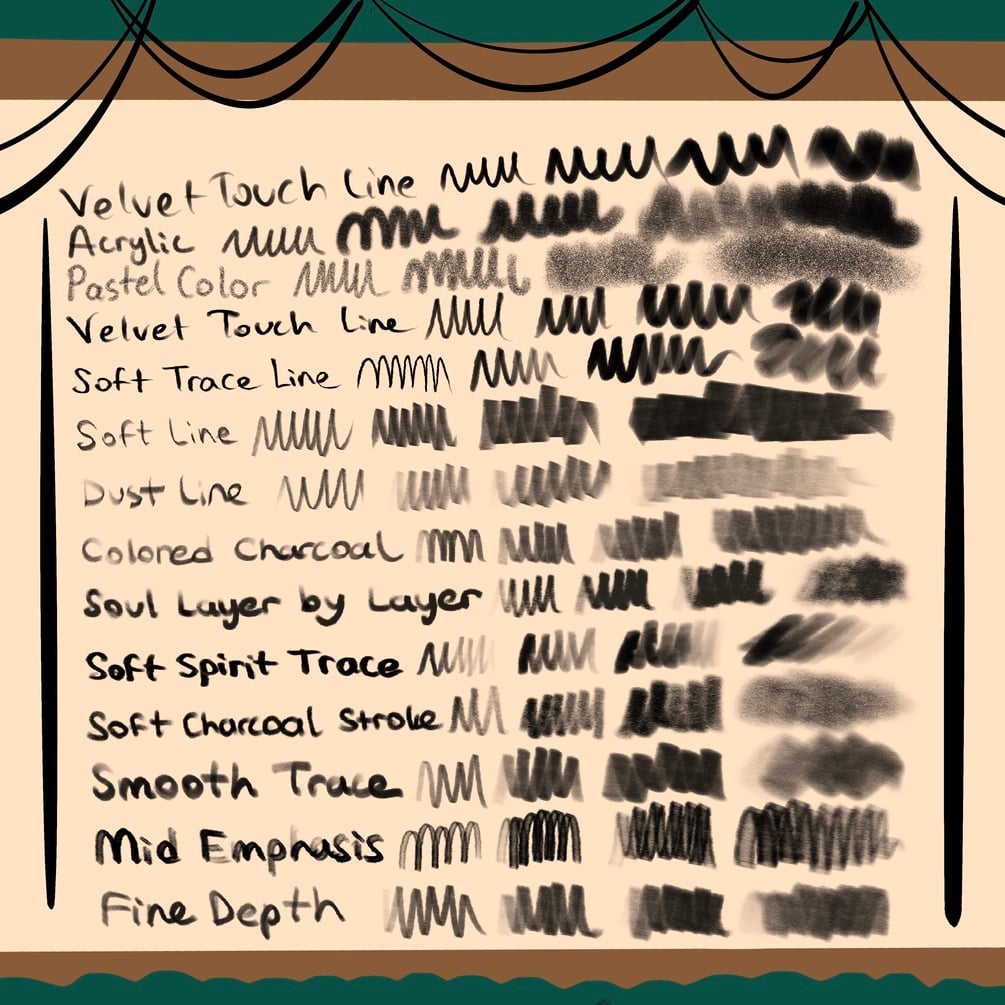 Velvet Touch Line
Acrylic
Pastel Color
Velvet Touch Line
Soft Trace Line
Soft Line
Dust Line
Colored Charcoal
Soul Layer by Layer
Soft Spirit Trace
Soft Charcoal Stroke
Smooth Trace
Mid Emphasis
Fine Depth